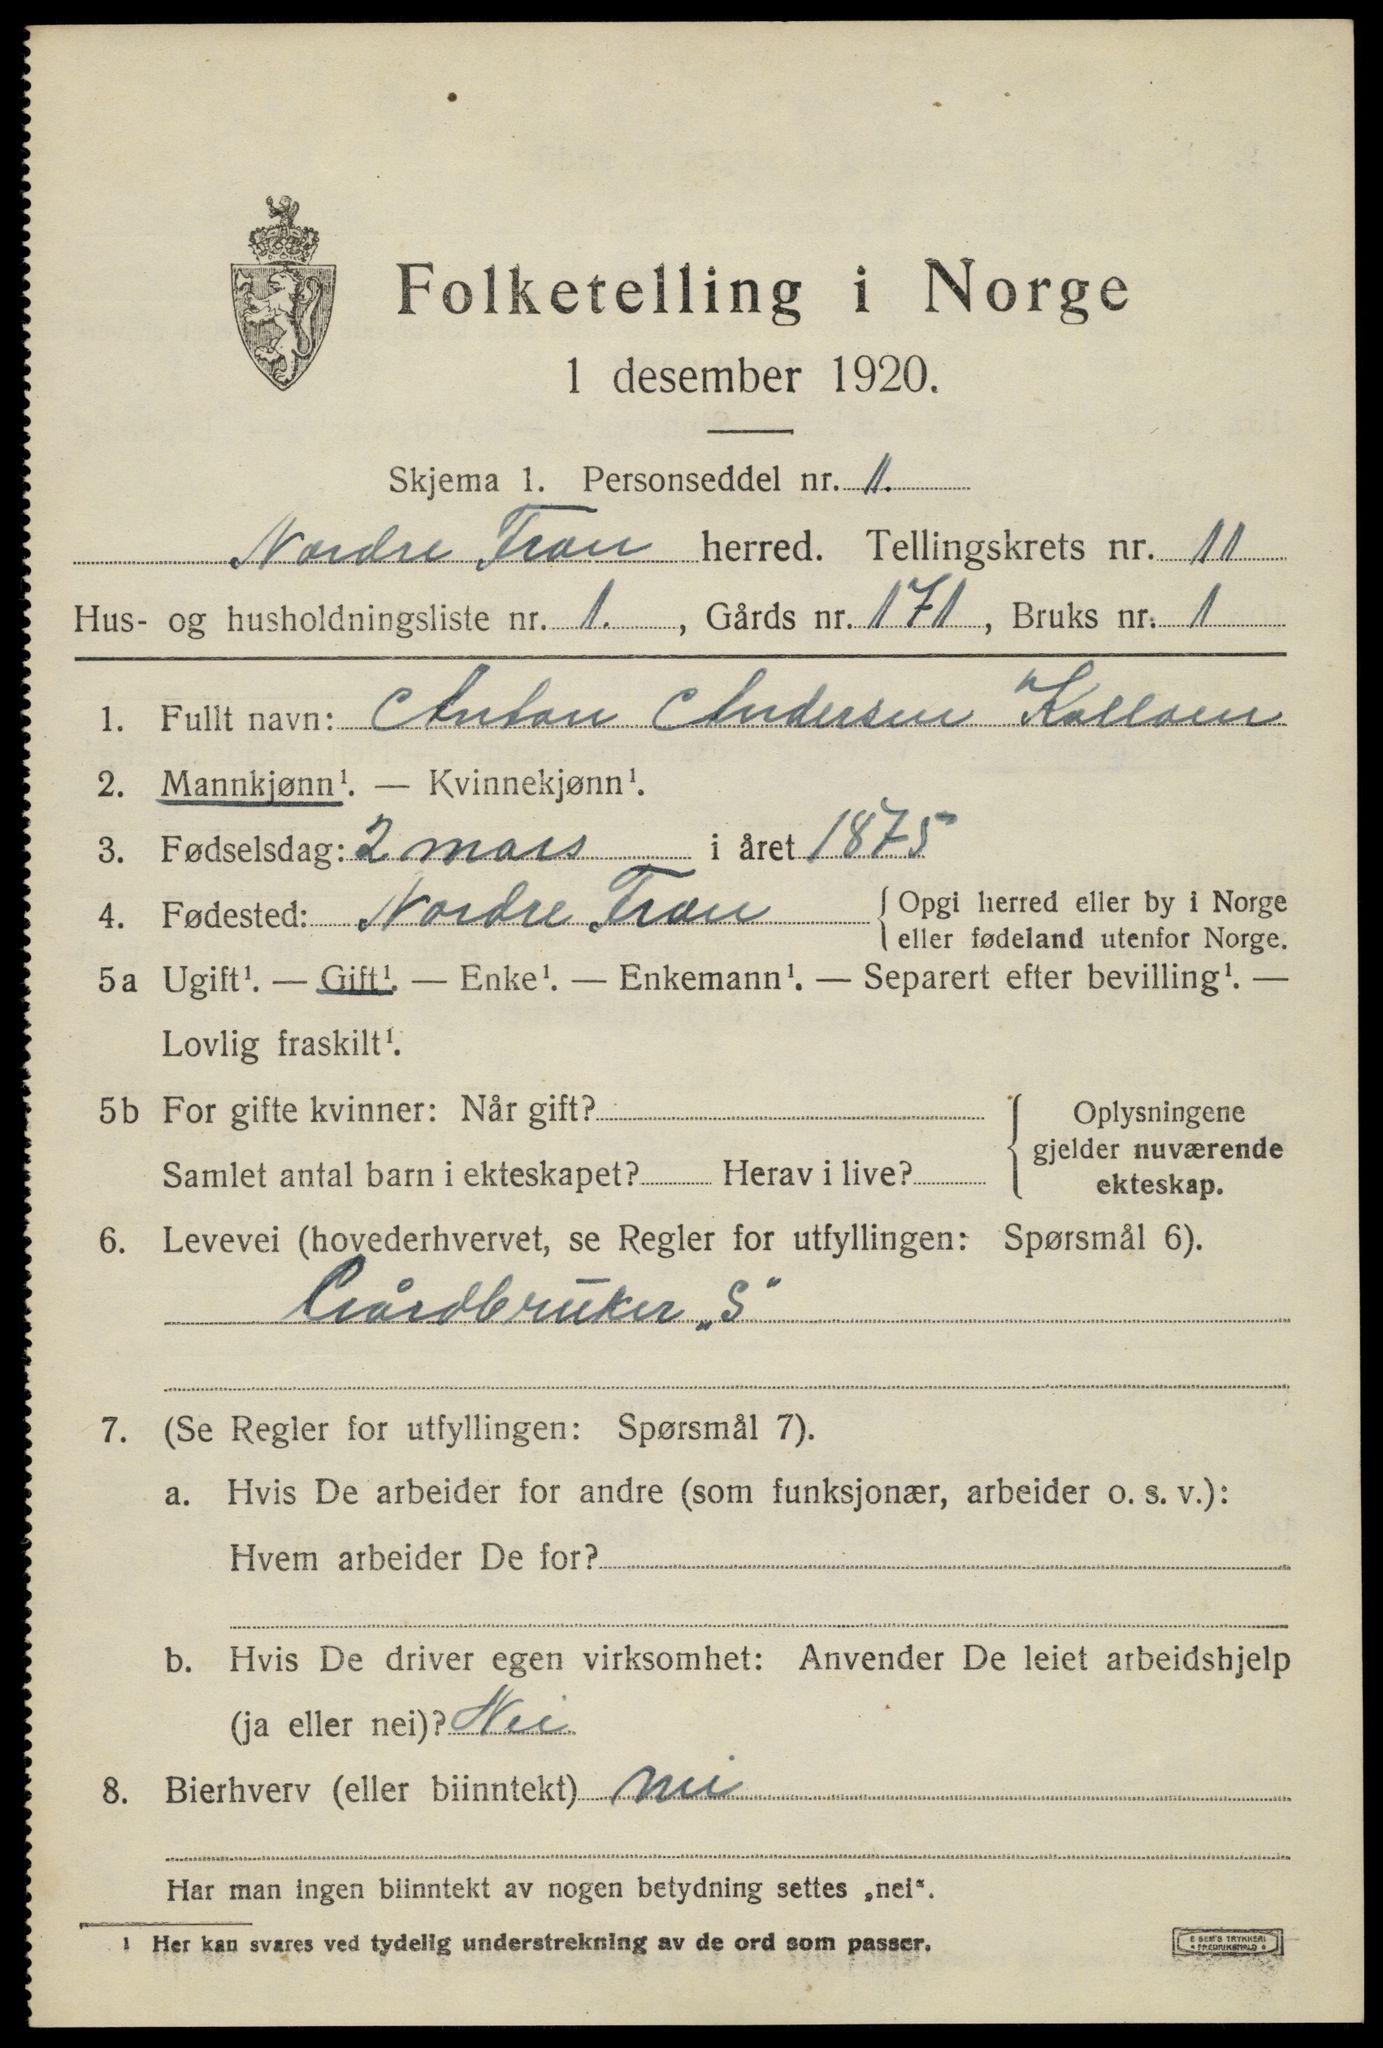 Folketelling i Norge
1 desember 1920.
Skjema 1. Personseddel nr. 1.
Nordre Fron herred. Tellingskrets nr. 11
Hus- og husholdningsliste nr. 1., Gårds nr. 171, Bruks nr. 1
1. Fullt navn: Anton Andersen Kolloen
2. Mannkjønn¹. — Kvinnekjønn¹.
3. Fødselsdag: 2 mars i året 1875
4. Fødested: Nordre Fron { Opgi herred eller by i Norge
eller fødeland utenfor Norge.
5a Ugift¹. — Gift¹. — Enke¹. — Enkemann¹. — Separert efter bevilling¹. —
Lovlig fraskilt¹.
5b For gifte kvinner: Når gift?
Samlet antal barn i ekteskapet? Herav i live?
Oplysningene
gjelder nuværende
ekteskap.
6. Levevei (hovederhvervet, se Regler for utfyllingen: Spørsmål 6).
Gårdbruker „S"
7. (Se Regler for utfyllingen: Spørsmål 7).
a. Hvis De arbeider for andre (som funksjonær, arbeider o. s. v.):
Hvem arbeider De for?
b. Hvis De driver egen virksomhet: Anvender De leiet arbeidshjelp
(ja eller nei)? Nei
8. Bierhverv (eller biinntekt) nei
Har man ingen biinntekt av nogen betydning settes „nei“.
1 Her kan svares ved tydelig understrekning av de ord som passer.
E SEM'S TRYKKERI
FREDRIKSHALD